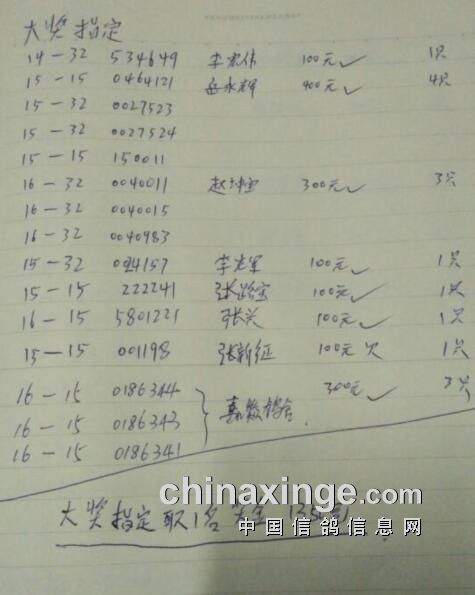 大奖指定
14-32 534649 李宏伟 100元✓ 1只
15-15 0464121 岳永辉 400元✓ 4只
15-32 0027523
15-32 0027524
15-15 150011
16-32 0040011 赵坤宝 300元✓ 3只
16-32 0040015
16-32 0040983
15-32 024157 李光军 100元✓ 1只
15-15 222241 张路宝 100元✓ 1只
16-15 5801221 张兴 100元✓ 1只
15-15 001198 张新征 100元 欠 1只
16-15 0186344 300元✓ 3只
16-15 0186343 鸽舍
16-15 0186341
大奖指定取1名
chinaxinge.com
中国信鸽信息网